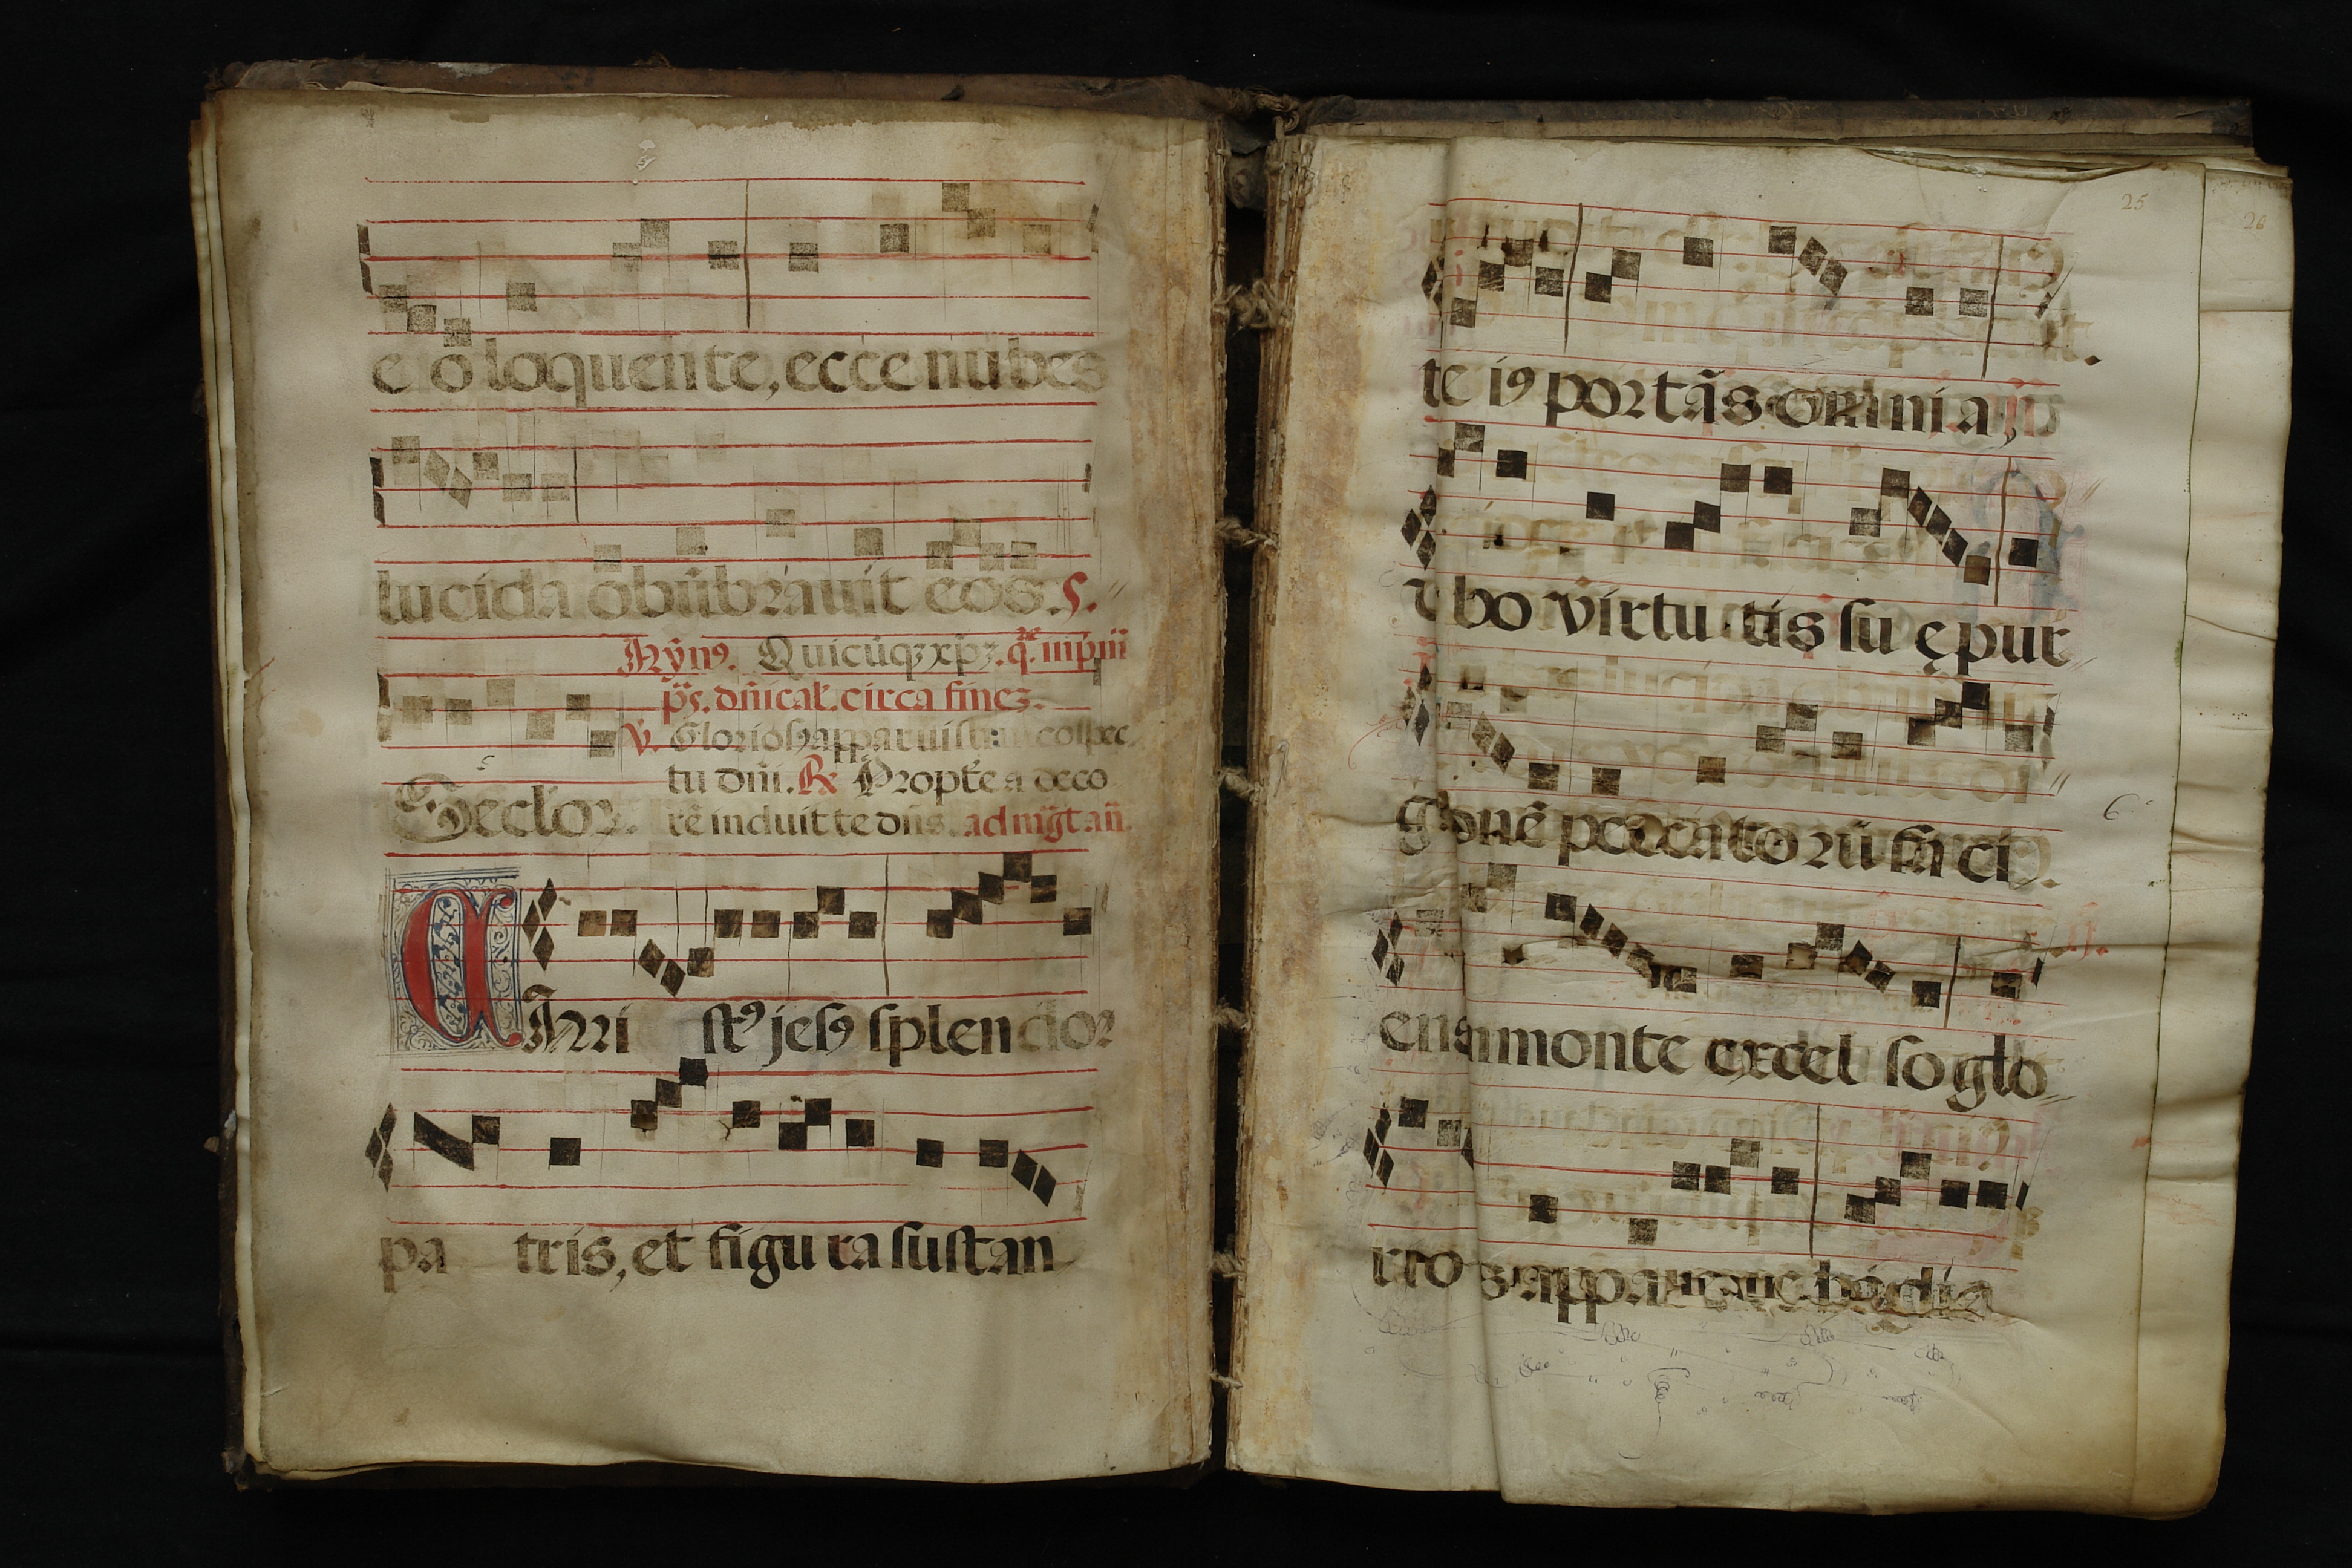 e o loquente, ecce nubes
lucida obũbrauit eos. ς.
Hỹnꝰ. Quicũqꝫ xp̃ꝫ. q̃. in pm̃
p̃s. dñical. circa fineꝫ.
℣. Gloriosꝰ apparuisti in cōspec
tu dñi. ℟ Propt̃ea deco
rẽ induit te dñs. ad mg̃t añ.
Seclor.
CHri stꝰ jesꝰ splendor
pa tris, et figu ra sustan
25
26
te iꝰ portãs omni a,
bo virtu tis su ę pur
g onẽ peccato rũ fa ci
6
ens in monte excel so glo
rio sꝰ appa rere